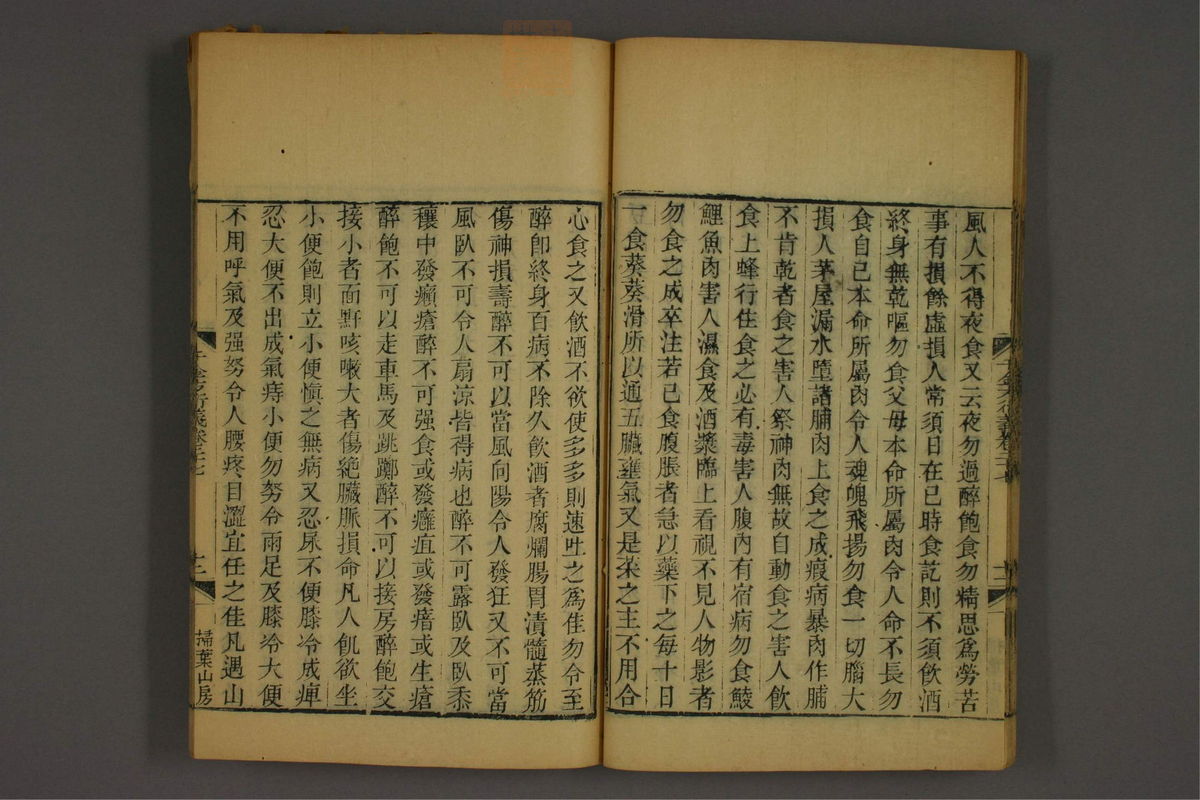 風人不得夜食又云夜勿過醉飽食勿精思爲勞苦
事有損餘虛損人常須日在巳時食訖則不須飲酒
終身無乾嘔勿食父母本命所屬肉令人命不長勿
食自己本命所屬肉令人魂魄飛揚勿食一切腦大
損人茅屋漏水墮諸脯肉上食之成瘕病暴肉作脯
不肯乾者食之害人祭神肉無故自動食之害人飲
食上蜂行住食之必有毒害人腹內有宿病勿食鯪
鯉魚肉害人濕食及酒漿臨上看視不見人物影者
勿食之成卒注若已食腹脹者急以藥下之每十日
一食葵葵滑所以通五臟壅氣又是菜之主不用合
心食之又飲酒不欲使多多則速吐之爲佳勿令至
醉卽終身百病不除久飲酒者腐爛腸胃漬髓蒸筋
傷神損壽醉不可以當風向陽令人發狂又不可當
風臥不可令人扇涼皆得病也醉不可露臥及臥黍
穰中發癩瘡醉不可强食或發癰疽或發瘖或生瘡
醉飽不可以走車馬及跳躑醉不可以接房醉飽交
接小者面䵟咳嗽大者傷絶臟脈損命凡人飢欲坐
小便飽則立小便愼之無病又忍尿不便膝冷成痺
忍大便不出成氣痔小便勿努令兩足及膝冷大便
不用呼氣及强努令人腰疼目澀宜任之佳凡遇山
千金方衍義卷二十七
十二
掃葉山房